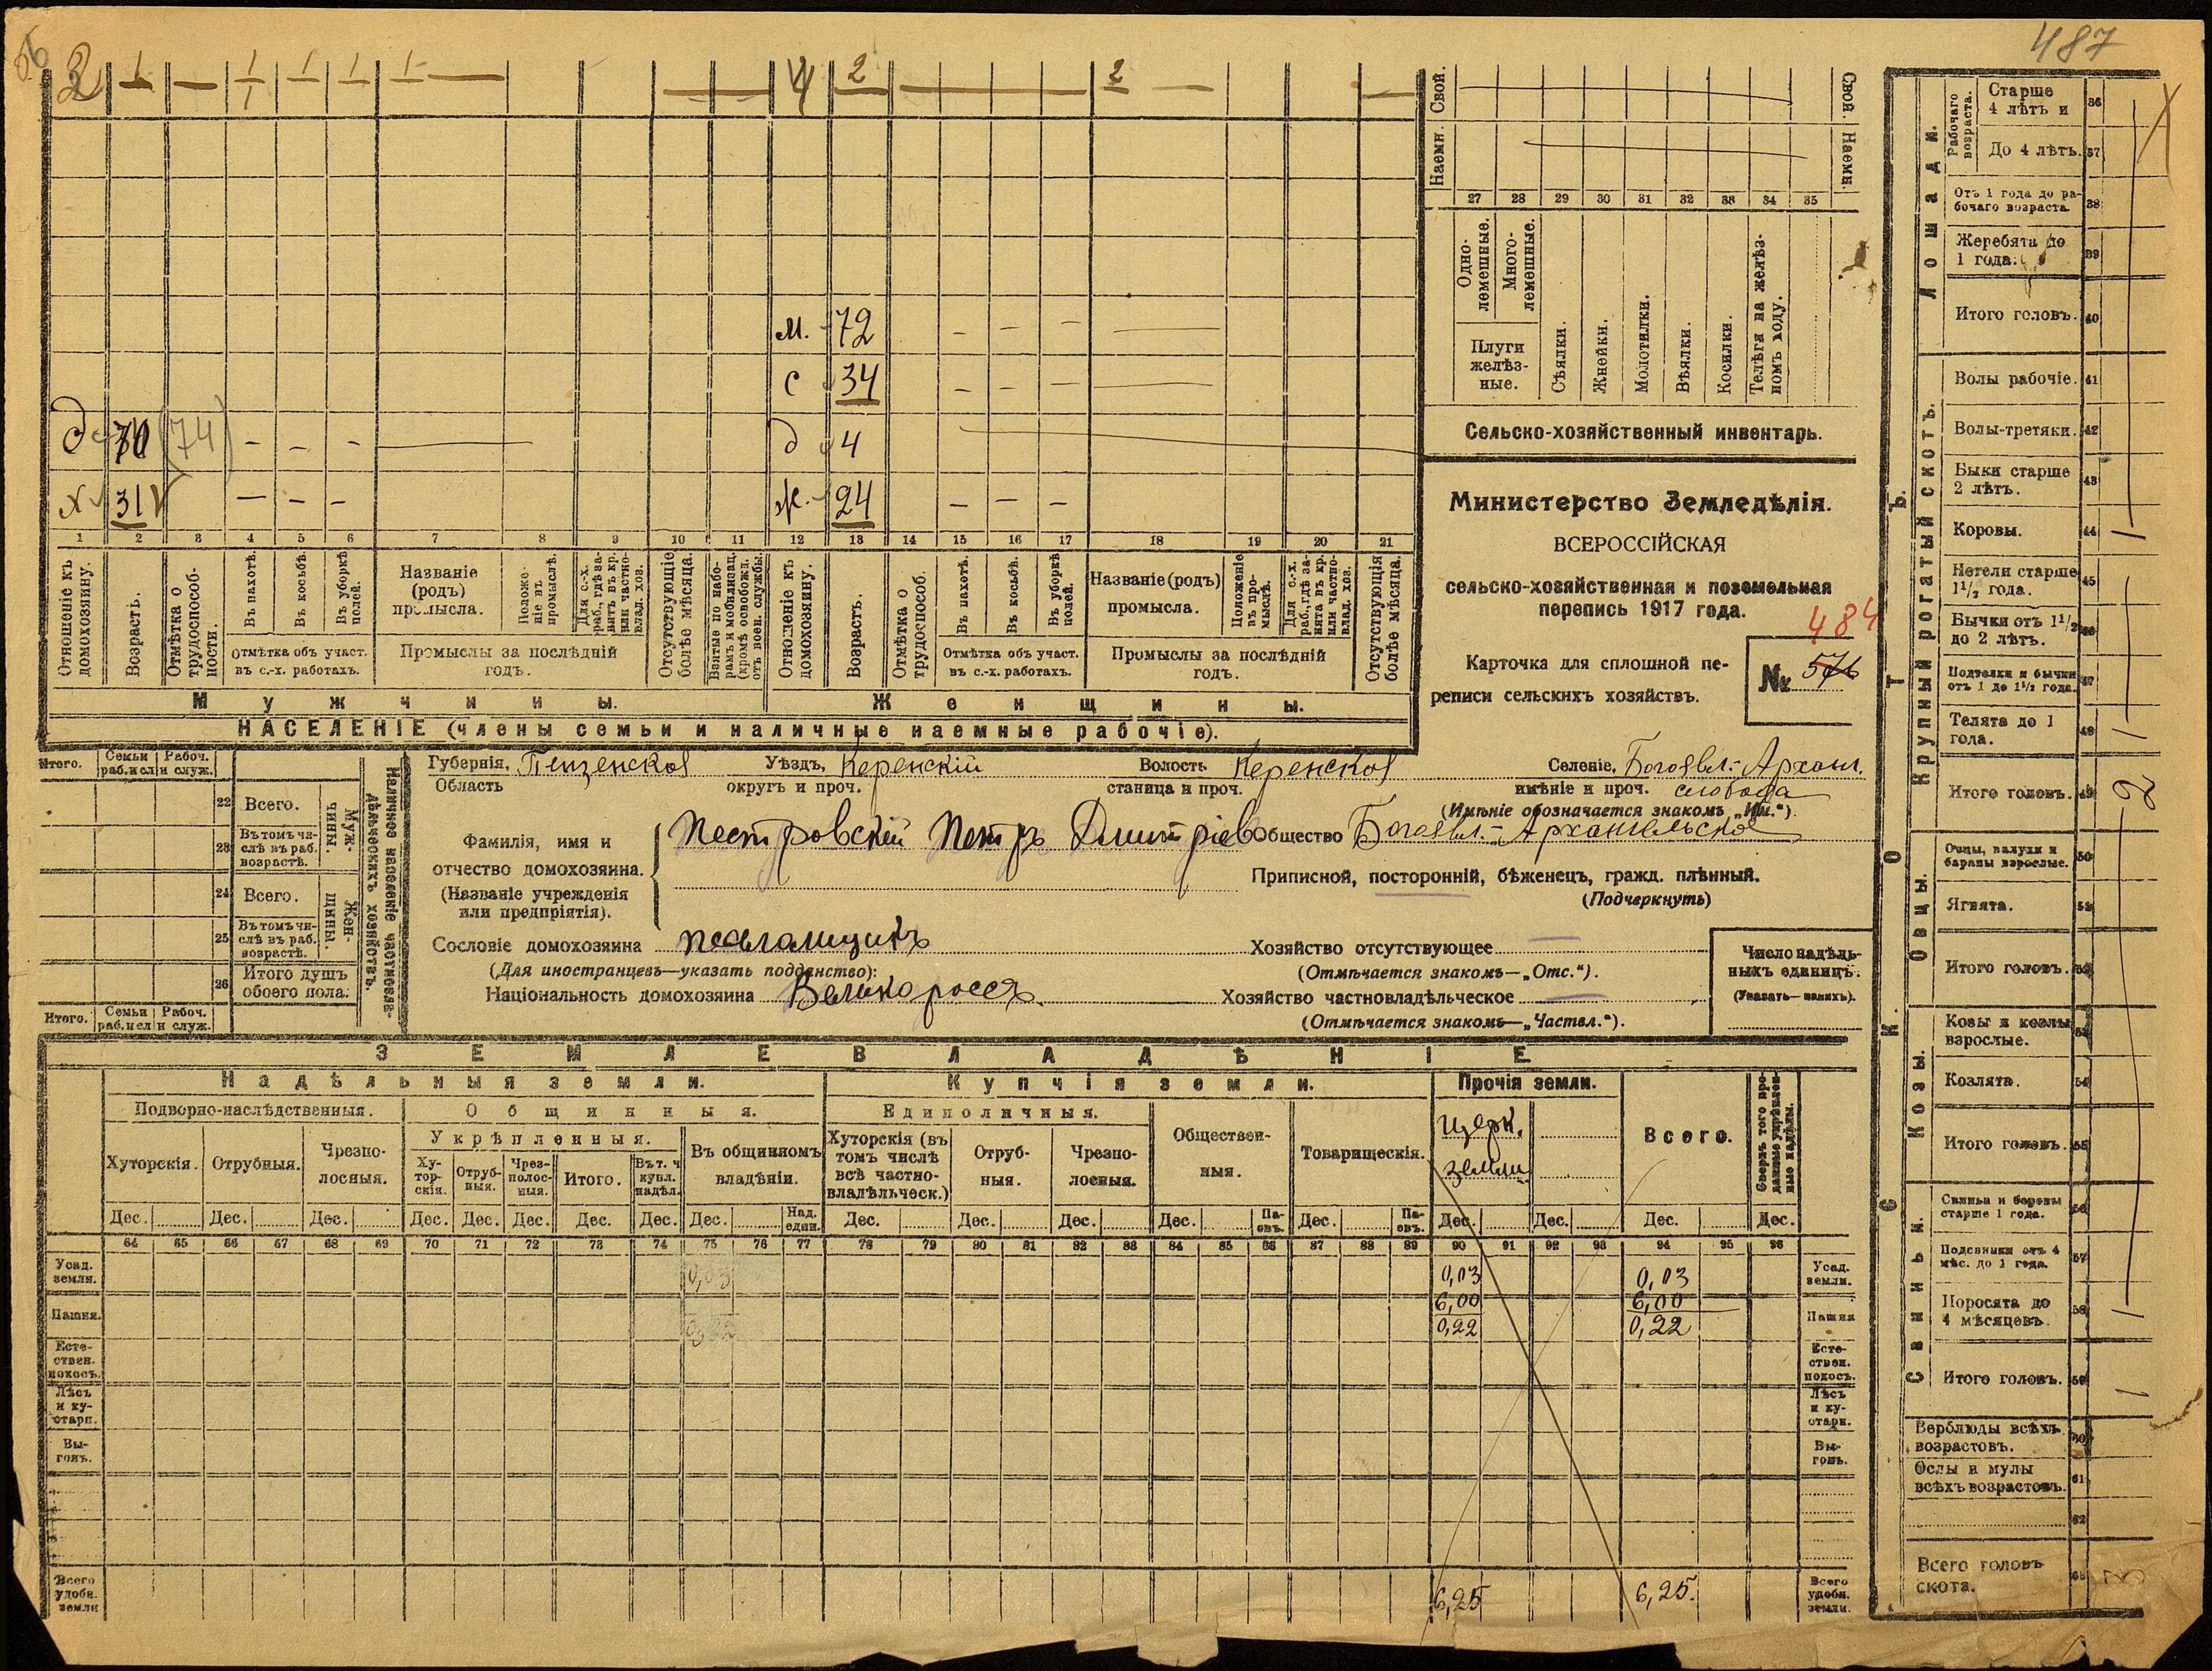 487
2 1 — 1 1 1 1 — 4 2 — 2 —
1
м. 72 — — — —
с 34 — — — —
д 70 (74) — — — — д 4
х 31 — — — ж. 24 — — —
1 2 3 4 5 6 7 8 9 10 11 12 13 14 15 16 17 18 19 20 21
Отношеніе къ домохозяину.
Возрастъ.
Отмѣтка о трудоспособности.
Въ пахотѣ.
Въ косьбѣ.
Въ уборкѣ полей.
Отмѣтка объ участ. въ с.-х. работахъ.
Названіе (родъ) промысла.
Положеніе въ промыслѣ.
Для с.-х. раб., гдѣ занятъ въ кр. или частновлад. хоз.
Промыслы за послѣдній годъ.
Отсутствующіе болѣе мѣсяца.
Взятые по наборамъ и мобилизац. (кромѣ освобожд. отъ воен. службы).
Отношеніе къ домохозяину.
Возрастъ.
Отмѣтка о трудоспособ.
Въ пахотѣ.
Въ косьбѣ.
Въ уборкѣ полей.
Отмѣтка объ участ. въ с.-х. работахъ.
Названіе (родъ) промысла.
Положеніе въ промыслѣ.
Для с.-х. раб., гдѣ занята въ кр. или частновлад. хоз.
Промыслы за послѣдній годъ.
Отсутствующія болѣе мѣсяца.
Мужчины.
Женщины.
НАСЕЛЕНІЕ (члены семьи и наличные наемные рабочіе).
Свой. Свой.
Наемн. Наемн.
27 28 29 30 31 32 33 34 35
Одно-лемешные.
Много-лемешные.
Плуги желѣз-ные.
Сѣялки.
Жнейки.
Молотилки.
Вѣялки.
Косилки.
Телѣги на желѣз-номъ ходу.
Сельско-хозяйственный инвентарь.
Министерство Земледѣлія.
ВСЕРОССІЙСКАЯ
сельско-хозяйственная и поземельная
перепись 1917 года.
484
Карточка для сплошной пе-
реписи сельскихъ хозяйствъ.
№ 576
Итого. Семьи раб. и сл. Рабоч. и служ.
22 Всего.
23 Въ томъ числѣ въ раб. возрастѣ.
Муж-чины.
24 Всего.
25 Въ томъ числѣ въ раб. возрастѣ.
Жен-щины.
26 Итого душъ обоего пола.
Наличное населеніе частновла-дѣльческихъ хозяйствъ.
Итого. Семьи раб. и сл. Рабоч. и служ.
Губернія, Пензенская Уѣздъ, Керенскій Волость Керенская Селеніе, Богоявл.-Архан.
Область округъ и проч. станица и проч. имѣніе и проч. слобода
(Имѣніе обозначается знакомъ „Им.“).
Фамилія, имя и отчество домохозяина. Пестровскій Петръ Дмитріев Общество Богоявл.-Архангельское
(Названіе учрежденія или предпріятія).
Приписной, посторонній, бѣженецъ, гражд. плѣнный.
(Подчеркнуть)
Сословіе домохозяина псаломщикъ Хозяйство отсутствующее —
(Для иностранцевъ—указать подданство): (Отмѣчается знакомъ—„Отс.“).
Національность домохозяина Великороссъ. Хозяйство частновладѣльческое —
(Отмѣчается знакомъ—„Частвл.“).
Число надѣль-ныхъ единицъ.
(Указать—какихъ).
ЗЕМЛЕВЛАДѢНІЕ
Надѣльныя земли. Купчія земли. Прочія земли.
Подворно-наслѣдственныя. Общинныя. Единоличныя.
Укрѣпленныя.
Хуторскія. Отрубныя. Чрезпо-лосныя.
Ху-тор-скія. Отруб-ныя. Чрез-полос-ныя. Итого. Въ т. ч. купл. надѣл.
Въ общинномъ владѣніи.
Хуторскія (въ томъ числѣ всѣ частно-владѣльческ.)
Отруб-ныя. Чрезпо-лосныя.
Обществен-ныя.
Товарищескія.
церк. земли
Всего.
Дес. Дес. Дес. Дес. Дес. Дес. Дес. Дес. Дес. Над. един. Дес. Дес. Дес. Дес. Па-евъ. Дес. Па-евъ. Дес. Дес. Дес. Дес.
64 65 66 67 68 69 70 71 72 73 74 75 76 77 78 79 80 81 82 83 84 85 86 87 88 89 90 91 92 93 94 95 96
Усад. земли. 0,03 0,03 0,03 Усад. земли.
Пашня. 6,00 6,00 Пашня
0,22 0,22
Есте-ствен. покосъ. Есте-ствен. покосъ.
Лѣсъ и ку-старн. Лѣсъ и ку-старн.
Вы-гонъ. Вы-гонъ.
Всего удобн. земли 6,25 6,25. Всего удобн. земли.
СКОТЪ.
Лошади.
Рабочаго возраста.
Старше 4 лѣтъ и 36
До 4 лѣтъ. 37
Отъ 1 года до ра-бочаго возраста 38
Жеребята до 1 года. 39
Итого головъ. 40
Крупный рогатый скотъ.
Волы рабочіе. 41
Волы-третяки. 42
Быки старше 2 лѣтъ. 43
Коровы. 44 1
Нетели старше 1½ года. 45
Бычки отъ 1½ до 2 лѣтъ. 46
Подтелки и бычки отъ 1 до 1½ года. 47
Телята до 1 года. 48 1
Итого головъ. 49 2
Овцы.
Овцы, валухи и бараны взрослые. 50
Ягнята. 51
Итого головъ. 52
Козы.
Козы и козлы взрослые. 53
Козлята. 54
Итого головъ. 55
Свиньи.
Свиньи и боровы старше 1 года. 56
Подсвинки отъ 4 мѣс. до 1 года. 57
Поросята до 4 мѣсяцевъ. 58 1
Итого головъ. 59 1
Верблюды всѣхъ возрастовъ. 60
Ослы и мулы всѣхъ возрастовъ. 61
62
Всего головъ скота. 63 3